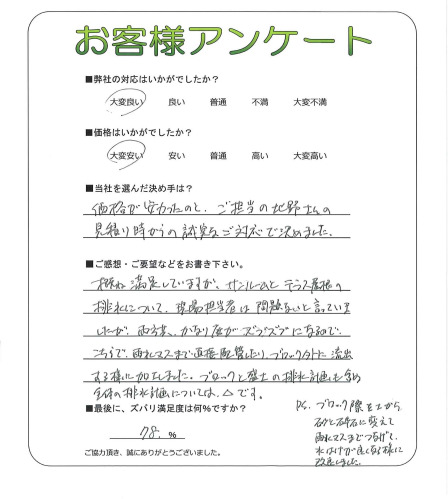 お客様アンケート
■弊社の対応はいかがでしたか?
大変良い 良い 普通 不満 大変不満
■価格はいかがでしたか?
大変安い 安い 普通 高い 大変高い
■当社を選んだ決め手は?
価格が安かったのと、ご担当の北野さんの
見積り時からの誠実なご対応で決めました。
■ご感想・ご要望などをお書き下さい。
概ね満足していますが、サンルームとテラス屋根の
排水について、現場担当者は問題ないと言っていま
したが、雨天集、かなり庭がズブズブになるので、
こちらで、雨水マスまで直接配管したり、ブロック外に流出
する様に加工しました。ブロックと盛土の排水計画も含め
全体の排水計画については、△です。
■最後に、ズバリ満足度は何%ですか?
78. %
P.S. ブロック際を土から
砂と砕石に変えて
雨水マスまでつなげて、
水はけが良くなる様に
改良しました。
ご協力頂き、誠にありがとうございました。